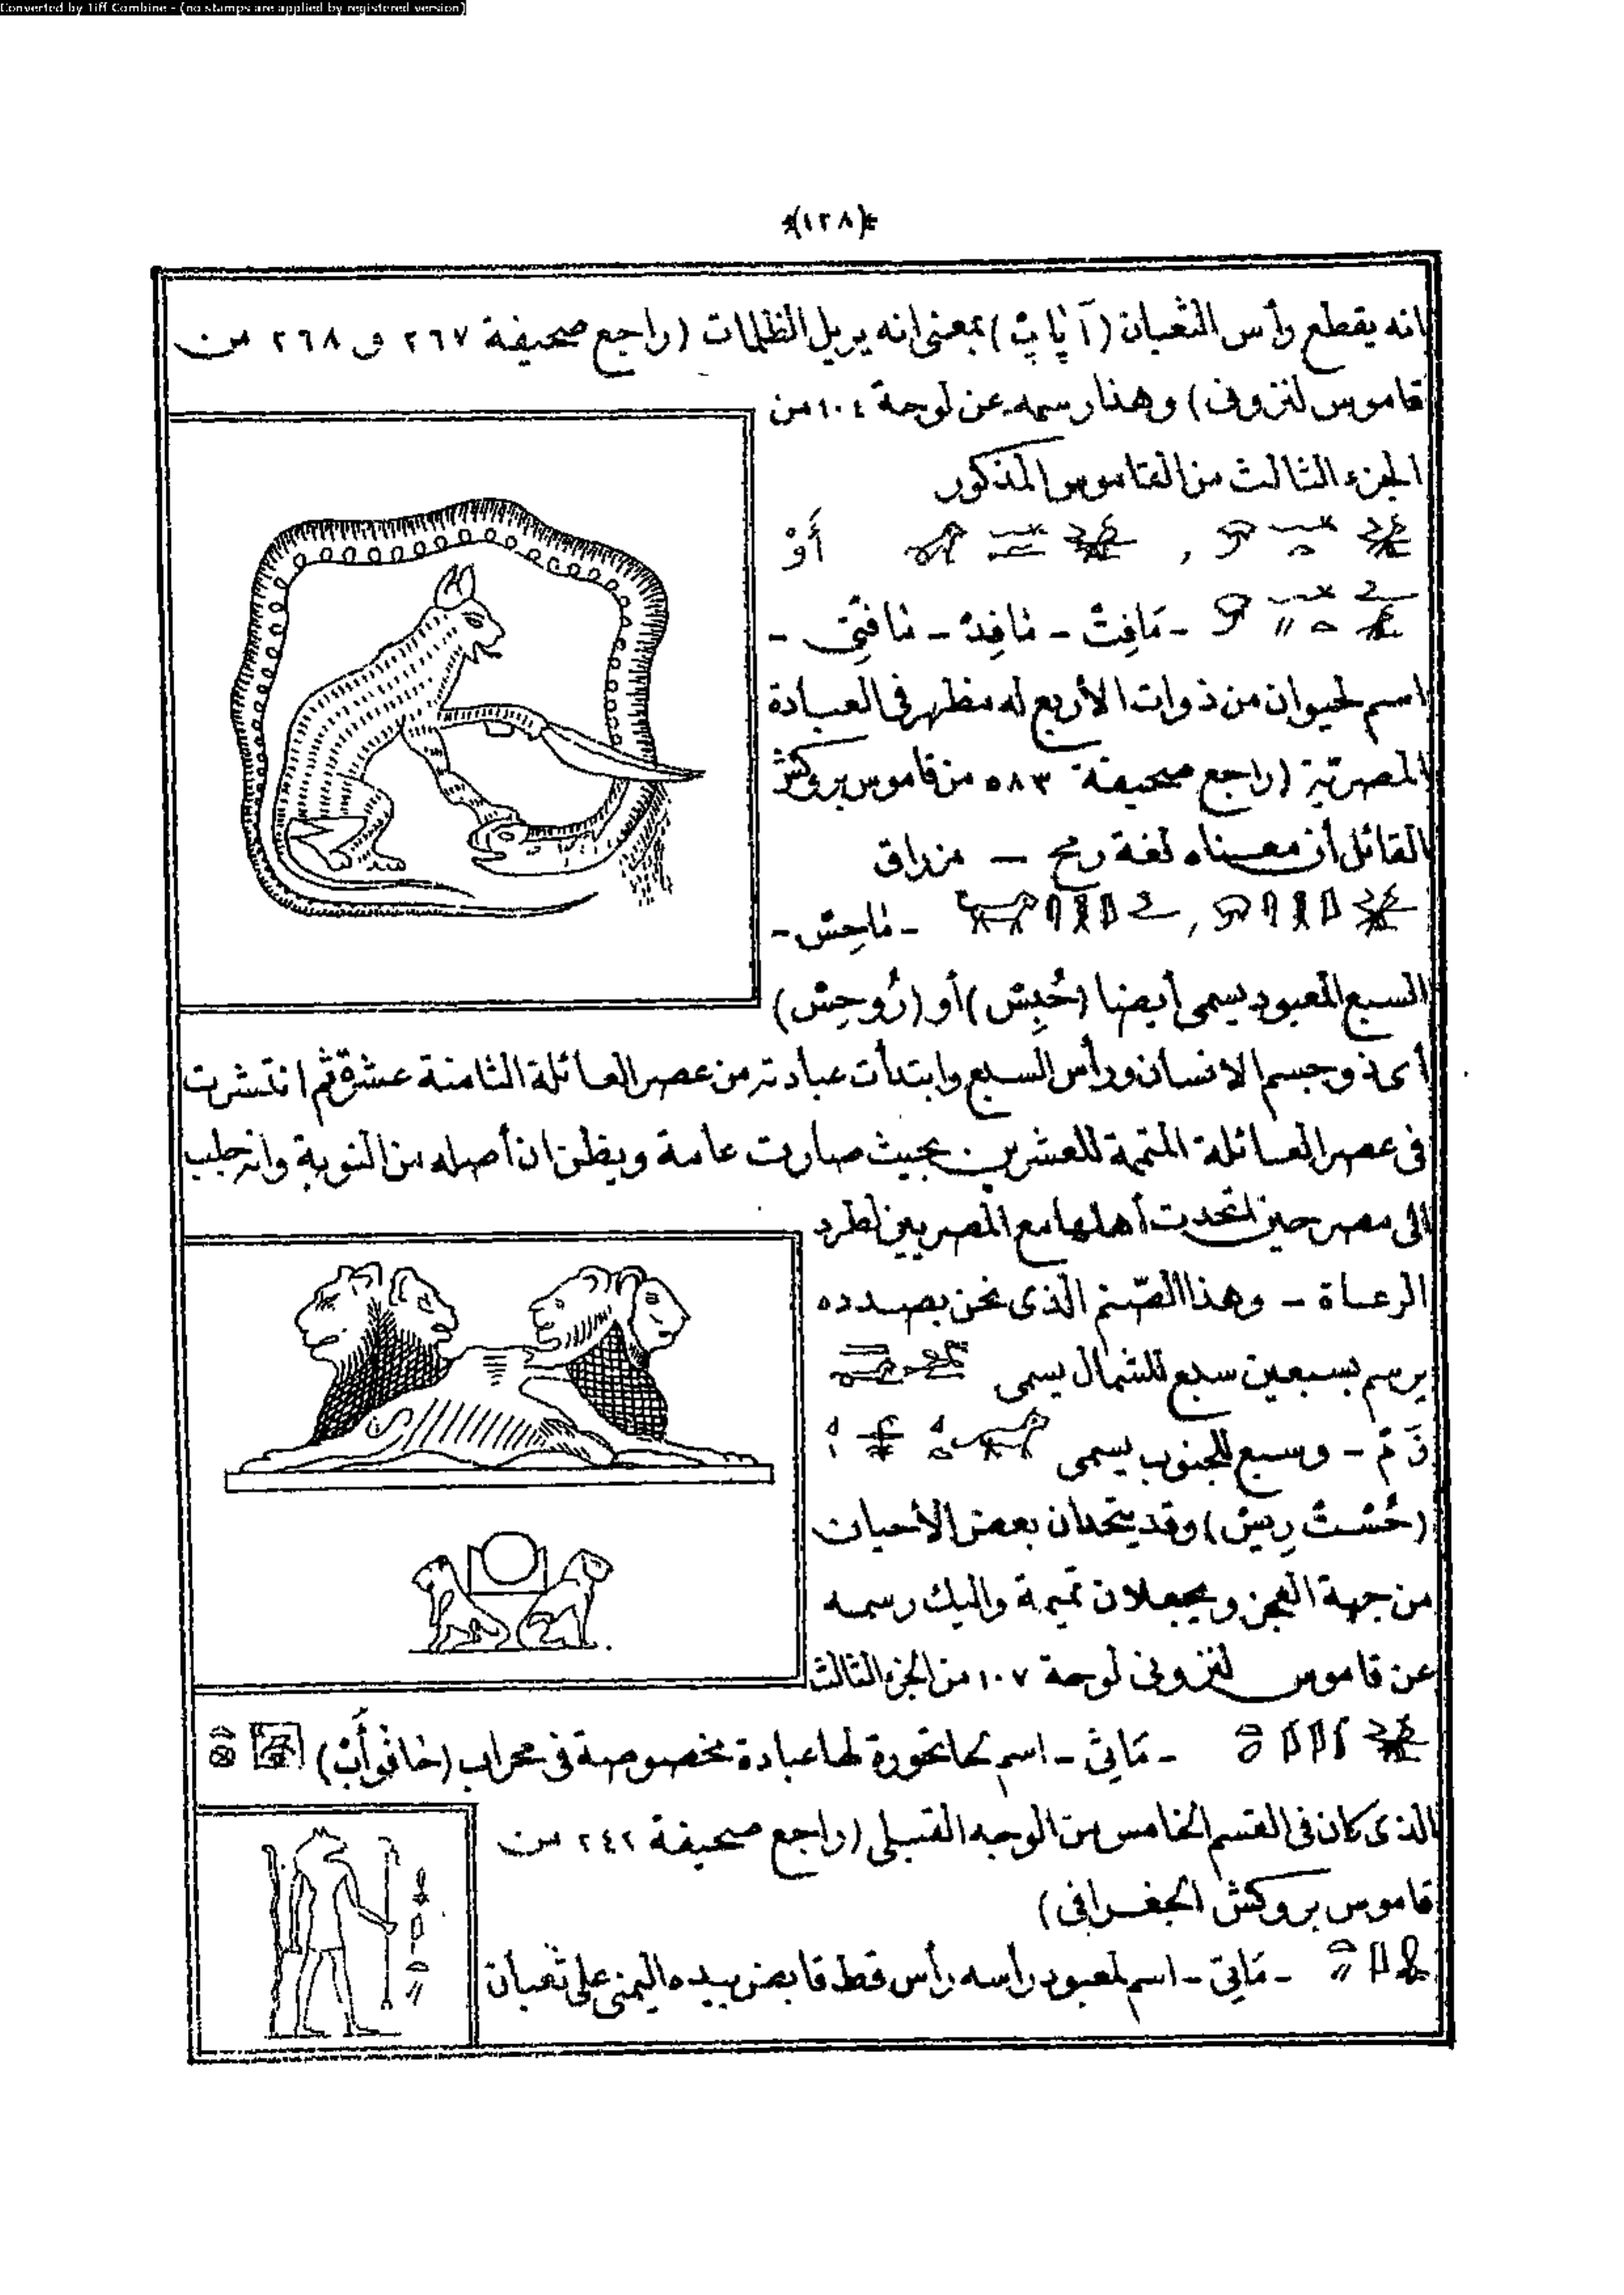 Converted by Tiff Combine - (no stamps are applied by registered version)
(١٢٨)
انه يقطع رأس الثعبان (آپاپ) بمعنى انه يزيل الظلمات (راجع صحيفة ٢٦٧ و ٢٦٨ من
قاموس لنزونى) وهذا رسمه عن لوحة ١٠٤ من
الجزء الثالث من القاموس المذكور
أَوْ
- مَافِتْ - مَافِدْ - مَافِتِى -
اسم لحيوان من ذوات الأربع له مظهر فى العبادة
المصرية (راجع صحيفة ٥٨٣ من قاموس بروكش
القائل أن معناه لغة رمح — مزراق
- مَاحِسْ -
السبع المعبود يسمى أيضا (حُبِسْ) أو (رُوحِسْ)
أى ذو جسم الانسان ورأس السبع وابتدأت عبادته من عصر العائلة الثامنة عشرة ثم انتشرت
فى عصر العائلة المتممة للعشرين بحيث صارت عامة ويظن ان أصله من النوبة وانه جلب
الى مصر حين اتحدت أهلها مع المصريين لطرد
الرعاة - وهذا الصنم الذى نحن بصدده
يرسم بسبعين سبع للشمال يسمى
- وسبع للجنوب يسمى
وقد يتحدان بعض الأحيان
من جهة العجز ويجعلان تميمة واليك رسمه
عن قاموس لنزونى لوحة ١٠٧ من الجزء الثالث
- مَاتِى - اسم لها عبادة مخصوصة فى محراب
الذى كان فى القسم الخامس من الوجه القبلى (راجع صحيفة ٢٤٢ من
قاموس بروكش الجغرافى)
- مَاتِى - اسم لمعبود رأسه رأس قط قابض بيده اليمنى على ثعبان